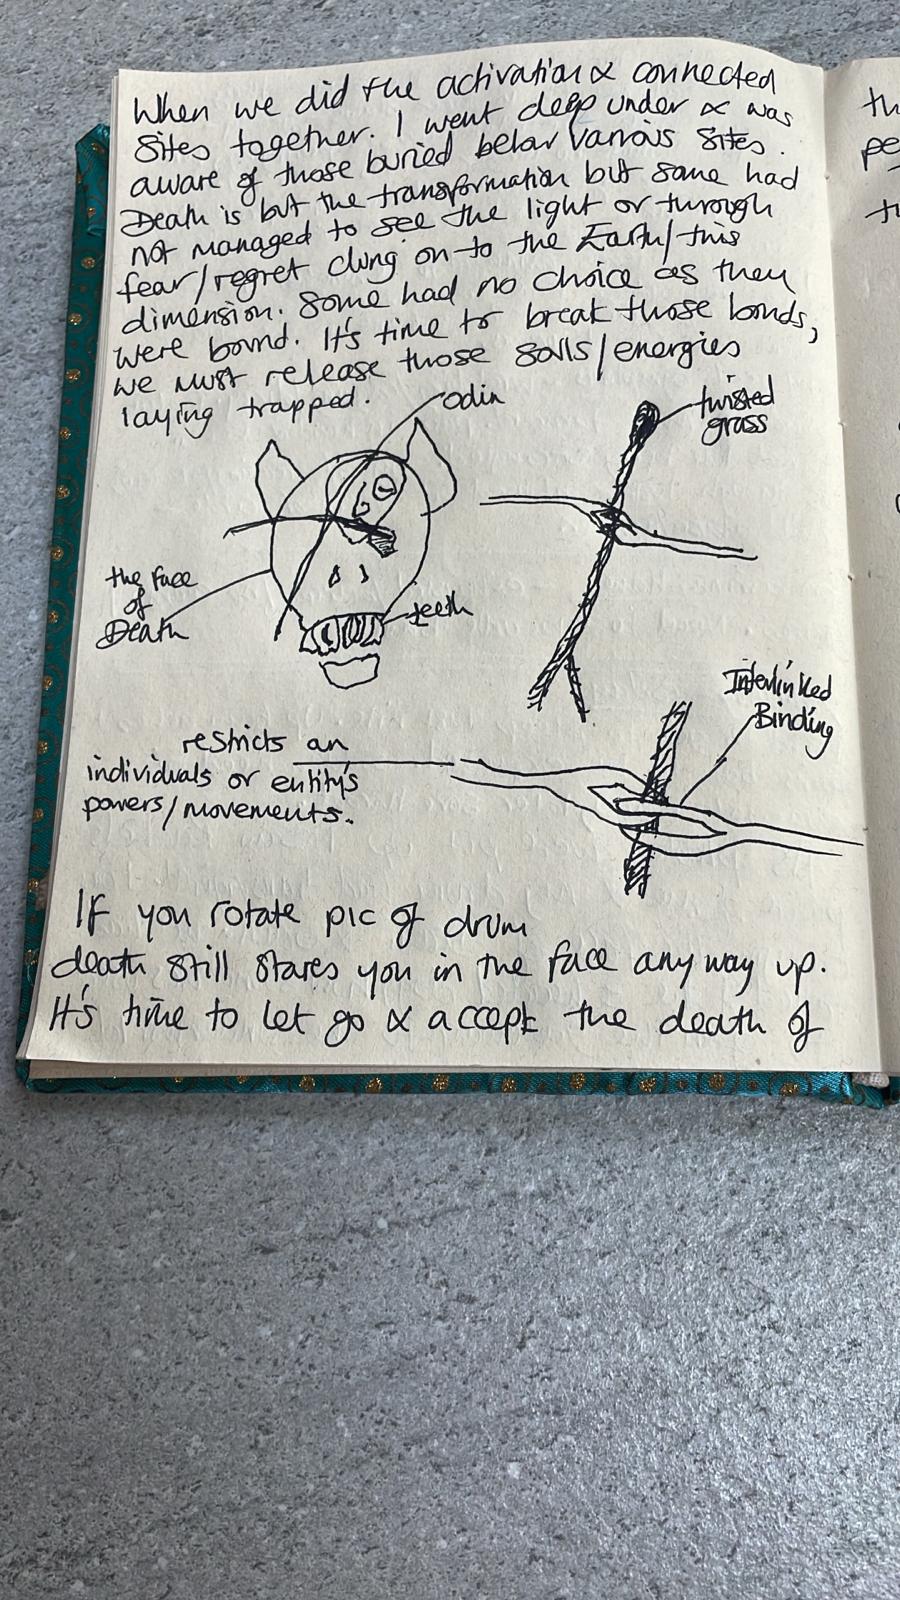 When we did the activation & connected
sites together. I went deep under & was
aware of those buried below various sites.
Death is but the transformation but some had
not managed to see the light or through
fear/regret clung on to the Earth/this
dimension. Some had no choice as they
were bound. It's time to break those bonds,
we must release those souls/energies
laying trapped.
odin
twisted
grass
the face
of
Death
teeth
Interlinked
Binding
restricts an
individuals or entity's
powers/movements.
If you rotate pic of drum
death still stares you in the face any way up.
It's time to let go & accept the death of
th
pe
th